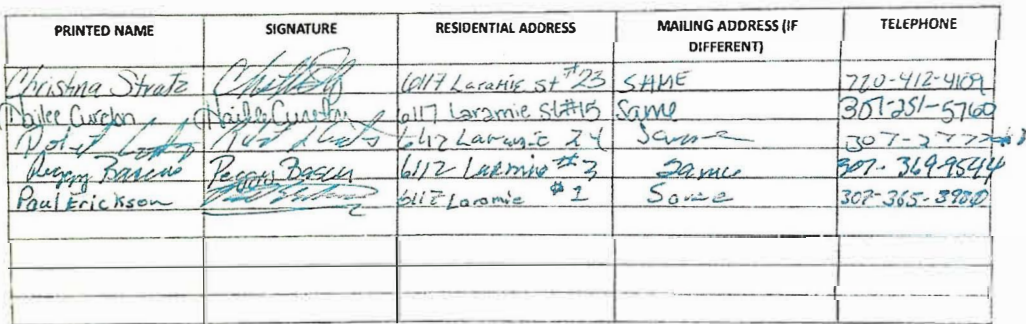 PRINTED NAME SIGNATURE RESIDENTIAL ADDRESS MAILING ADDRESS (IF DIFFERENT) TELEPHONE
Christina Stratz 6117 Laramie St #23 SAME 720-412-4109
Curdon 6117 Laramie St #15 Same 307-251-5760
6112 24 Same 307-277
Peggy Peggy 6112 #3 Same 307-369-9544
Paul Erickson 6112 Laramie #1 Same 307-365-3980